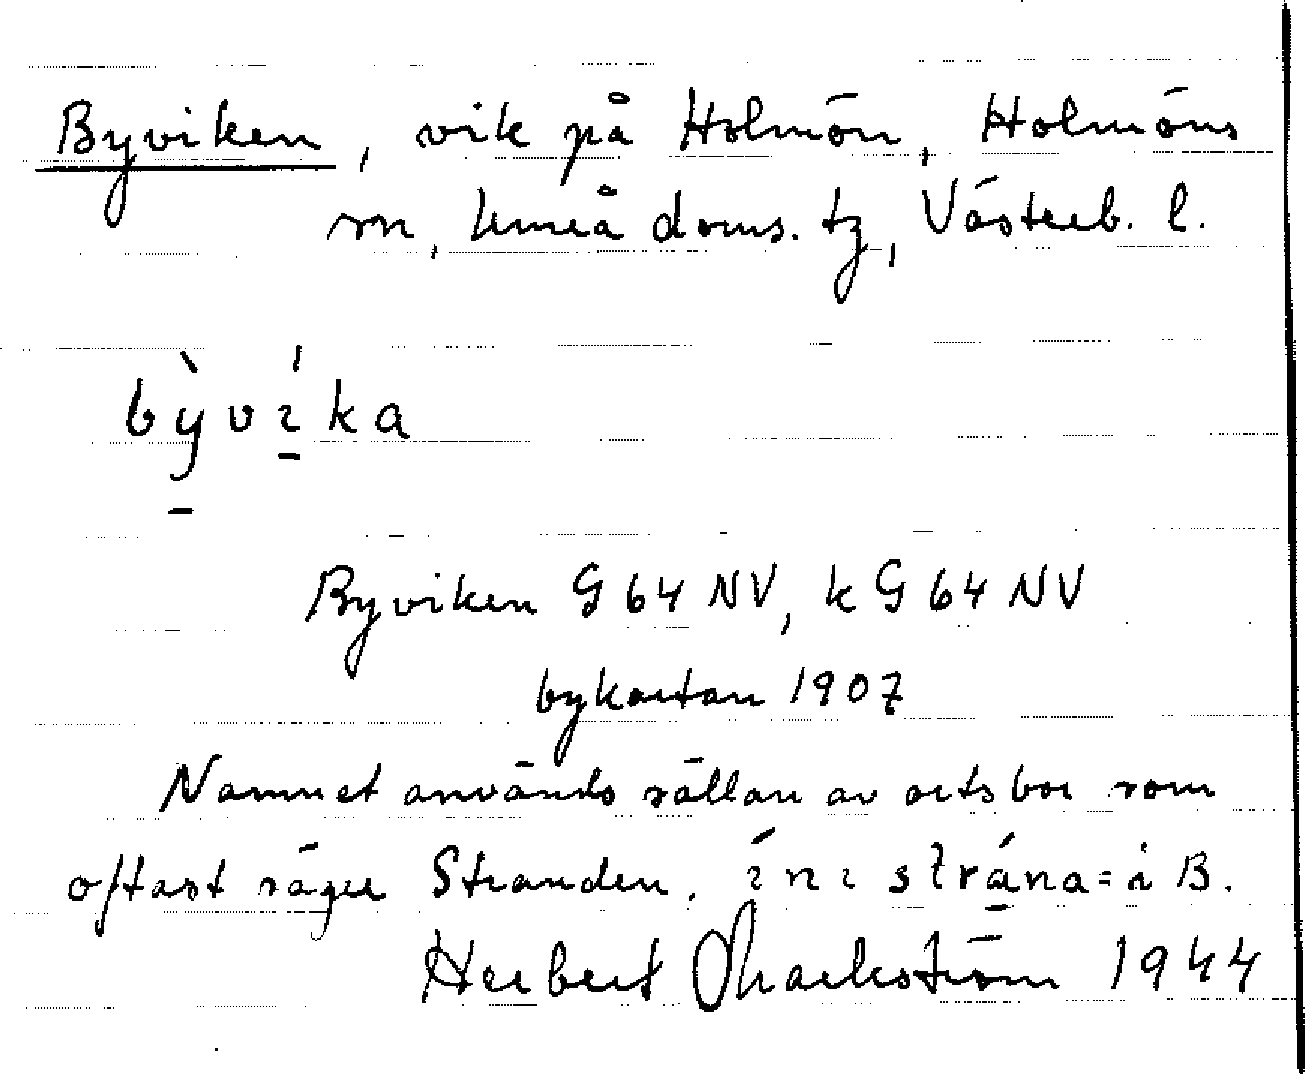 Byviken, vik på Holmön, Holmöns
sn, Umeå doms. tg, Västerb. l.
bỳvíka
Byviken G 64 NV, k G 64 NV
bykartan 1907
Namnet används sällan av ortsbor som
oftast säger Stranden. ini strána = i B.
Herbert 1944